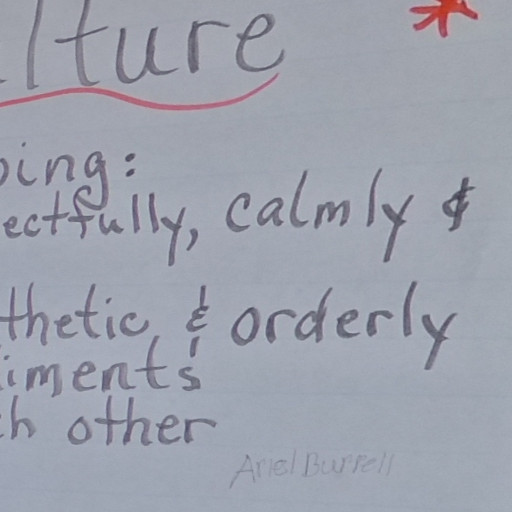 lture
oing:
ectfully, calmly &
thetic, & orderly
iments
h other
Ariel Burrell